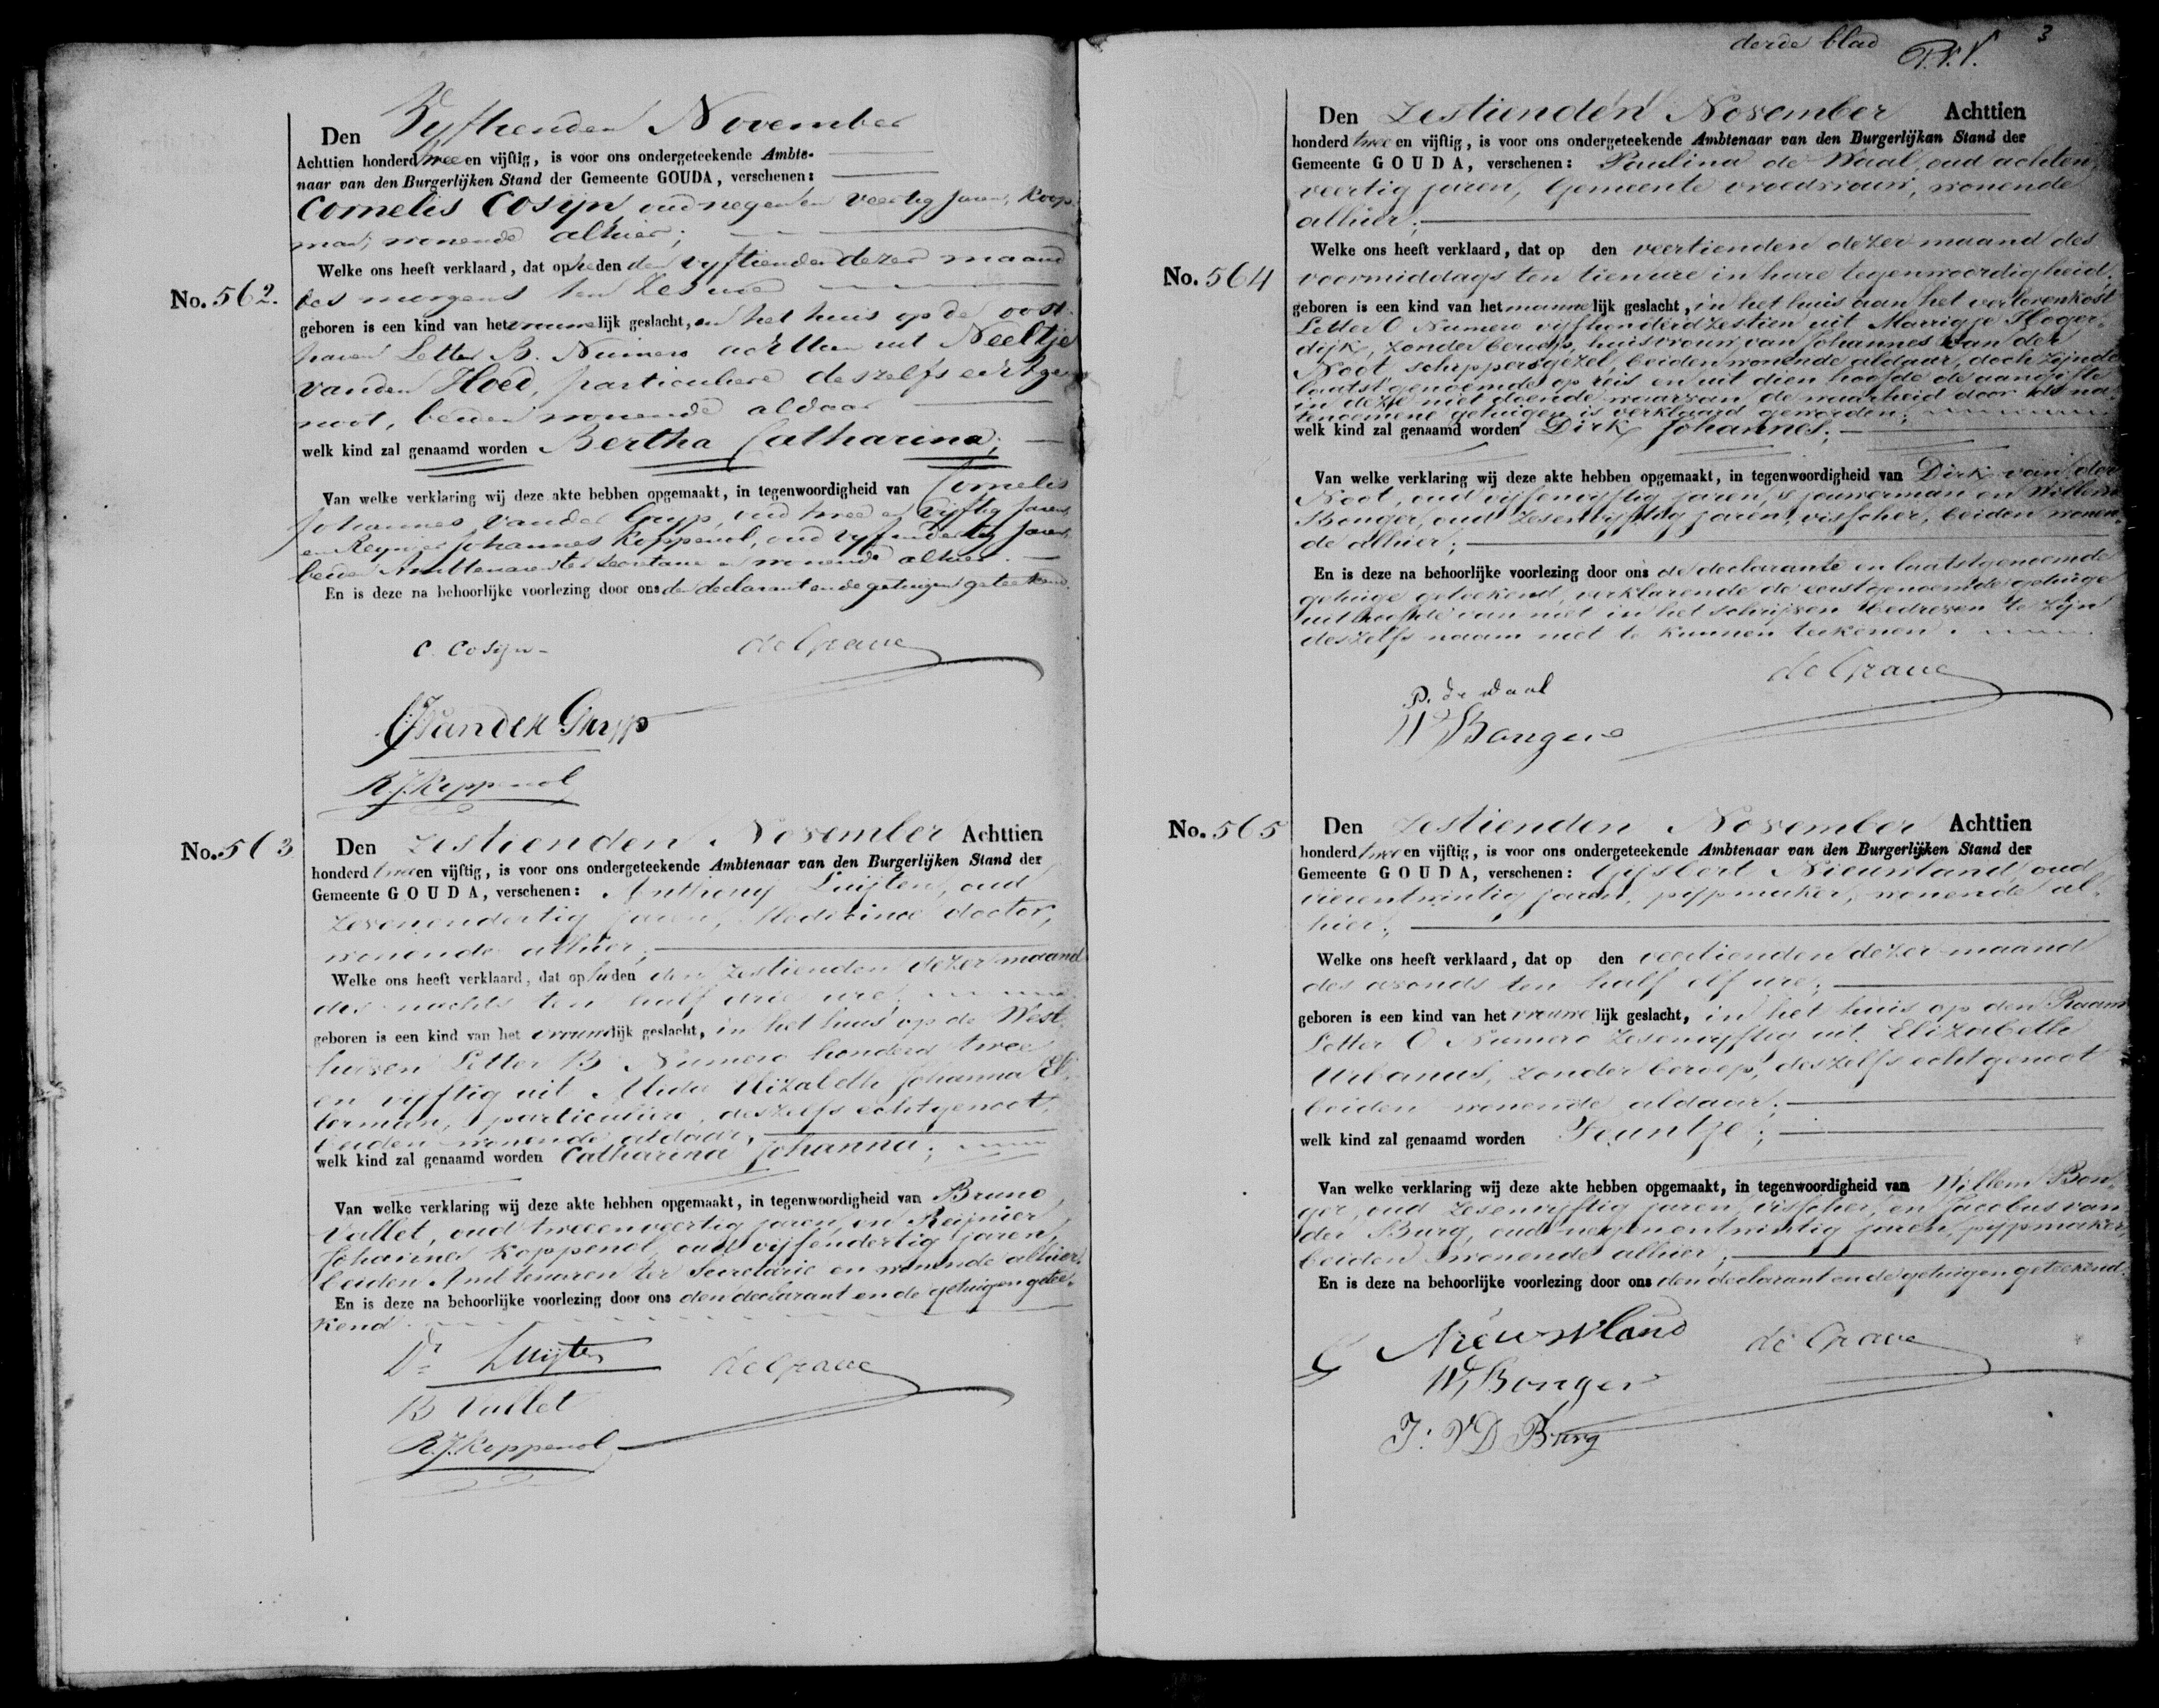 Den Vyftienden November
Achttien honderd twee en vijftig, is voor ons ondergeteekende Ambte-
naar van den Burgerlijken Stand der Gemeente GOUDA, verschenen:
Cornelis Cosijn, oud negen en veertig Jaren, Koop
man, wonende alhier;
Welke ons heeft verklaard, dat op heden den vyftienden dezer maand
No. 562. des morgens ten zes ure
geboren is een kind van het vrouwelijk geslacht, in het huis op de oost
haven Letter B. Numero achttien uit Neeltje
van den Hoed, particuliere deszelfs echtge
noot, beiden wonende aldaar
welk kind zal genaamd worden Bertha Catharina;
Van welke verklaring wij deze akte hebben opgemaakt, in tegenwoordigheid van Cornelis
Johannes van der Gryp, oud twee en vyftig Jaren,
en Reynier Johannes Koppenol, oud vyf en dertig Jaren,
beiden Ambtenaren ter Secretarie en wonende alhier.
En is deze na behoorlijke voorlezing door ons den declarant en de getuigen geteekend.
C. Cosijn de Grave
CJ van der Gryp
R.J. Koppenol
No. 563 Den Zestienden November Achttien
honderd twee en vijftig, is voor ons ondergeteekende Ambtenaar van den Burgerlijken Stand der
Gemeente GOUDA, verschenen: Anthony Luijten, oud
zevenendertig jaren, Medicinae doctor,
wonende alhier;
Welke ons heeft verklaard, dat op heden den zestienden dezer maand
des nachts ten half drie ure;
geboren is een kind van het vrouwelijk geslacht, in het huis op de West
haven Letter B Numero honderd twee
en vijftig uit Alida Elizabeth Johanna El
terman, particuliere, deszelfs echtgenoot,
beiden wonende aldaar,
welk kind zal genaamd worden Catharina Johanna;
Van welke verklaring wij deze akte hebben opgemaakt, in tegenwoordigheid van Bruno
Vallet, oud tweeenveertig jaren, en Reijnier
Johannes Koppenol, oud vijfendertig jaren,
beiden Ambtenaren ter Secretarie en wonende alhier.
En is deze na behoorlijke voorlezing door ons den declarant en de getuigen getee-
kend.
Dr. Luijten de Grave
B Vallet
R.J. Koppenol
derde blad 3
Den Zestienden November Achttien
honderd twee en vijftig, is voor ons ondergeteekende Ambtenaar van den Burgerlijkan Stand der
Gemeente GOUDA, verschenen: Paulina de Waal, oud achten
veertig jaren, Gemeente vroedvrouw, wonende
alhier;
Welke ons heeft verklaard, dat op den veertienden dezer maand des
No. 564 voormiddags ten tien ure in hare tegenwoordigheid,
geboren is een kind van het mannelijk geslacht, in het huis aan het verlorenkost
Letter O Numero vijfhonderd zestien uit Marrigje Hoger-
dijk, zonder beroep, huisvrouw van Johannes van der
Noot, schippersgezel, beiden wonende aldaar, doch zijnde
laatstgenoemde op reis en uit dien hoofde de aangifte
in deze niet doende waarvan de waarheid door de na-
tenoemene getuigen is verklaard geworden;
welk kind zal genaamd worden Dirk Johannes;
Van welke verklaring wij deze akte hebben opgemaakt, in tegenwoordigheid van Dirk van der
Noot, oud vijfenvyftig jaren, sjouwerman en Willem
Bonger, oud zesenvijftig jaren, visscher, beiden wonen-
de alhier;
En is deze na behoorlijke voorlezing door ons de declarante en laatstgenoemde
getuige geteekend, verklarende de eerstgenoemde getuige
uit hoofde van niet in het schrijven bedreven te zijn
deszelfs naam niet te kunnen teekenen.
P. de Waal de Grave
W Bonger
No. 565 Den Zestienden November Achttien
honderd twee en vijftig, is voor ons ondergeteekende Ambtenaar van den Burgerlijken Stand der
Gemeente GOUDA, verschenen: Gijsbert Nieuwland, oud
vierentwintig jaren, pypmaker, wonende al-
hier;
Welke ons heeft verklaard, dat op den veertienden dezer maand
des avonds ten half elf ure;
geboren is een kind van het vrouwelijk geslacht, in het huis op den Raam
Letter O Numero Zesenvyftig uit Elizabeth
Urbanus, zonder beroep, deszelfs echtgenoot
beiden wonende aldaar;
welk kind zal genaamd worden Teuntje;
Van welke verklaring wij deze akte hebben opgemaakt, in tegenwoordigheid van Willem Bon-
ger, oud Zesenvyftig jaren, visscher, en Jacobus van
der Burg, oud negenentwintig jaren, pypmaker,
beiden wonende alhier;
En is deze na behoorlijke voorlezing door ons den declarant en de getuigen geteekend.
G Nieuwland de Grave
W Bonger
J: VD Burg